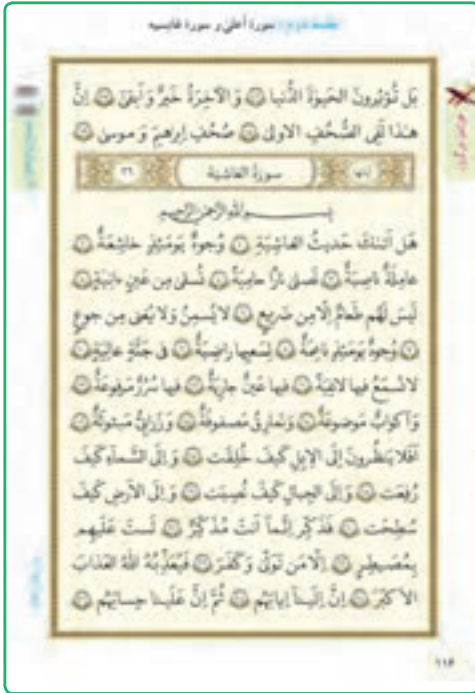 جلسه دوم: سورهٔ أعلیٰ و سورهٔ غاشیه
بَل تُؤثِرونَ الحَیوةَ الدُّنیا وَ الآخِرَةُ خَیرٌ وَ أَبقیٰ إِنَّ
هـٰذا لَفِی الصُّحُفِ الاولیٰ صُحُفِ إِبرٰهیمَ وَ موسیٰ
سورة الغاشیة ٢٦
بِسمِ اللهِ الرَّحمٰنِ الرَّحیمِ
هَل أَتىٰكَ حَدیثُ الغاشِیَةِ ١ وُجوهٌ یَومَئِذٍ خاشِعَةٌ
عامِلَةٌ ناصِبَةٌ تَصلیٰ نارًا حامِیَةً تُسقیٰ مِن عَینٍ ءانِیَةٍ
لَیسَ لَهُم طَعامٌ إِلّا مِن ضَریعٍ لا یُسمِنُ وَ لا یُغنی مِن جوعٍ
وُجوهٌ یَومَئِذٍ ناعِمَةٌ لِسَعیِها راضِیَةٌ فی جَنَّةٍ عالِیَةٍ
لا تَسمَعُ فیها لاغِیَةً فیها عَینٌ جارِیَةٌ فیها سُرُرٌ مَرفوعَةٌ
وَ أَکوابٌ مَوضوعَةٌ وَ نَمارِقُ مَصفوفَةٌ وَ زَرابِیُّ مَبثوثَةٌ
أَفَلا یَنظُرونَ إِلَی الإِبِلِ کَیفَ خُلِقَت وَ إِلَی السَّماءِ کَیفَ
رُفِعَت وَ إِلَی الجِبالِ کَیفَ نُصِبَت وَ إِلَی الأَرضِ کَیفَ
سُطِحَت فَذَکِّر إِنَّما أَنتَ مُذَکِّرٌ لَستَ عَلَیهِم
بِمُصَیطِرٍ إِلّا مَن تَوَلّیٰ وَ کَفَرَ فَیُعَذِّبُهُ اللهُ العَذابَ
الأَکبَرَ إِنَّ إِلَینا إِیابَهُم ثُمَّ إِنَّ عَلَینا حِسابَهُم
١١۶